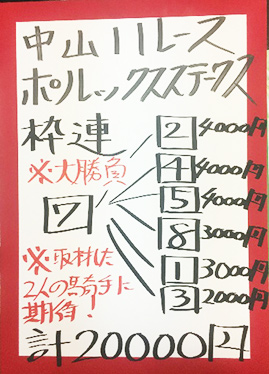 中山11レース
ポルックスステークス
枠連
※大勝負
7
2 4000円
4 4000円
5 4000円
8 3000円
1 3000円
3 2000円
※取材した
2人の騎手に
期待!
計20000円